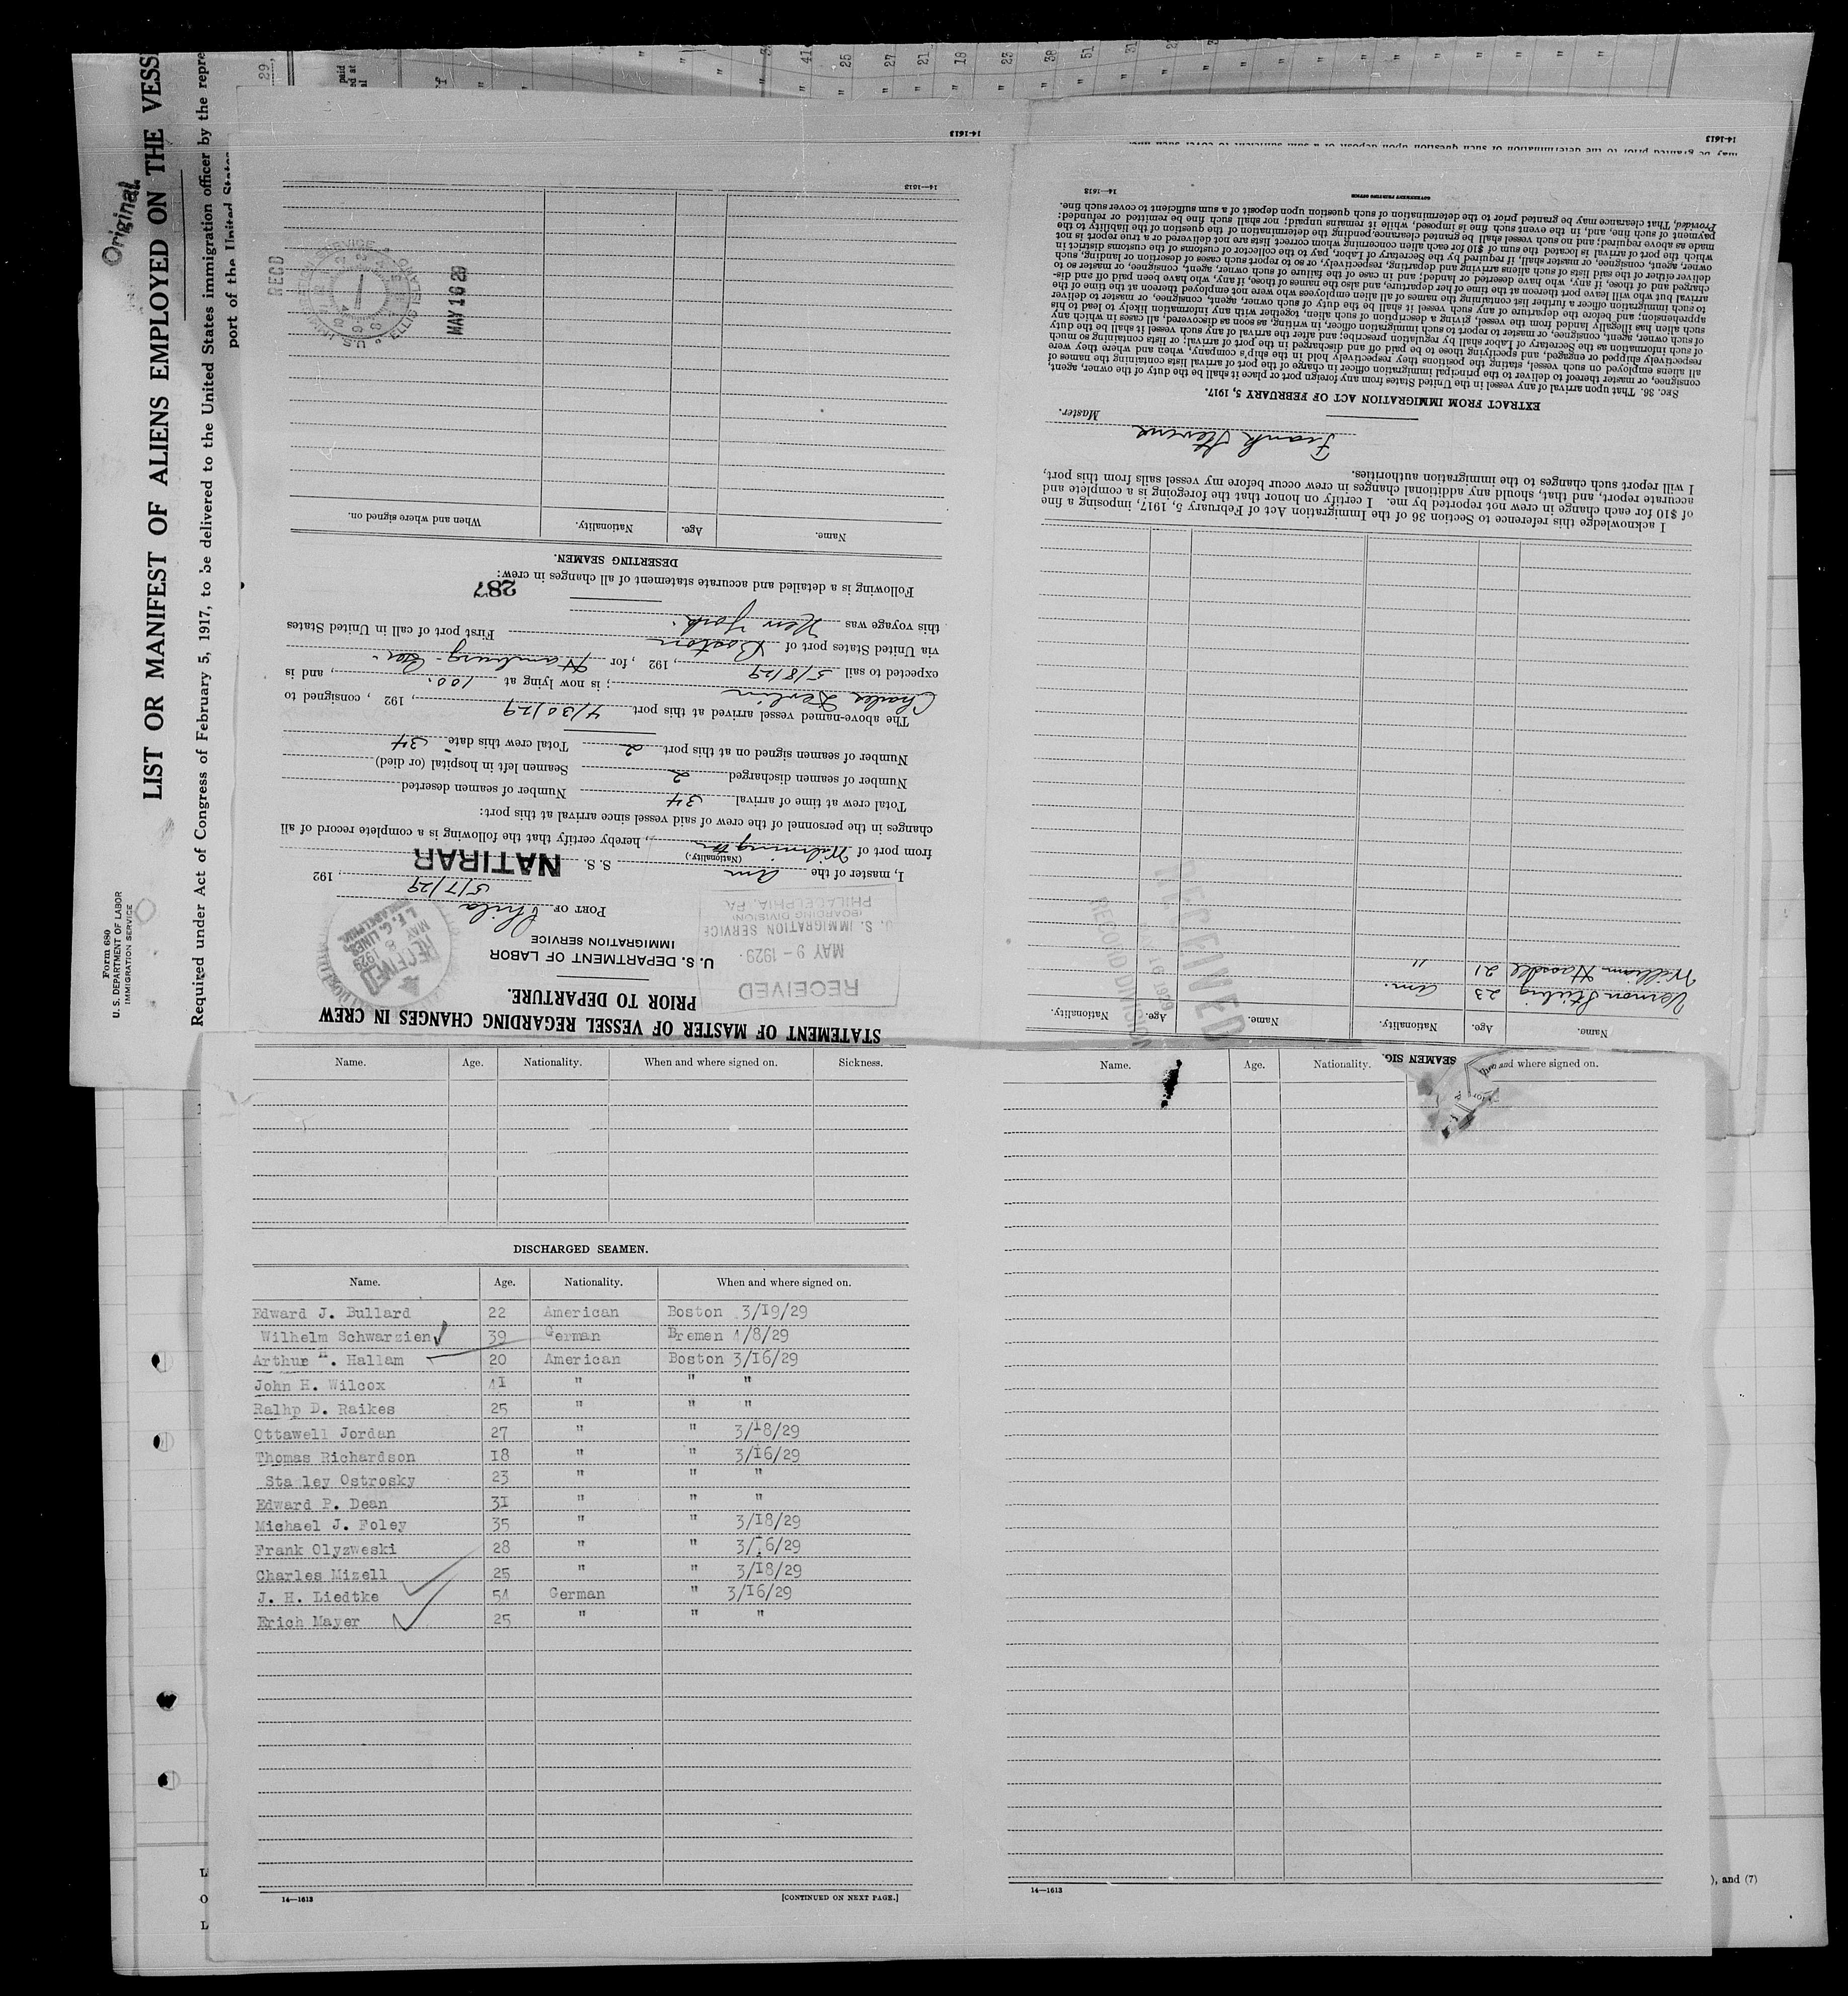 Original
Form 680
U. S. DEPARTMENT OF LABOR
IMMIGRATION SERVICE
LIST OR MANIFEST OF ALIENS EMPLOYED ON THE VESS
Required under Act of Congress of February 5, 1917, to be delivered to the United States immigration officer by the repre
port of the United States
STATEMENT OF MASTER OF VESSEL REGARDING CHANGES IN CREW
PRIOR TO DEPARTURE.
U. S. DEPARTMENT OF LABOR
IMMIGRATION SERVICE
RECEIVED
MAY 9 - 1929
U. S. IMMIGRATION SERVICE
(BOARDING DIVISION)
PHILADELPHIA, PA.
RECEIVED
MAY 8 1929
PORT OF Phila
5/7/29, 192
I, master of the Am S. S. NATIRAR
(Nationality.)
from port of Wilmington, hereby certify that the following is a complete record of all
changes in the personnel of the crew of said vessel since arrival at this port:
Total crew at time of arrival 34 Number of seamen deserted
Number of seamen discharged 2 Seamen left in hospital (or died)
Number of seamen signed on at this port 2 Total crew this date 34
The above-named vessel arrived at this port 4/30/29, 192 , consigned to
Charles ; is now lying at 100, and is
expected to sail 5/8/29, 192 , for Hamburg-Ger.
via United States port of Boston First port of call in United States
this voyage was New York.
287
Following is a detailed and accurate statement of all changes in crew:
DESERTING SEAMEN.
Name. Age. Nationality. When and where signed on.
REC'D
MAY 16 29
14—1613
14-1613
SEAMEN SIG
Name. Age. Nationality. Name. Age. Nationality.
Vernon Stirling 23 Am.
William 21 "
RECEIVED
RECORD DIVISION
I acknowledge this reference to Section 36 of the Immigration Act of February 5, 1917, imposing a fine
of $10 for each change in crew not reported by me. I certify on honor that the foregoing is a complete and
accurate report, and that, should any additional changes in crew occur before my vessel sails from this port,
I will report such changes to the immigration authorities.
Frank
Master.
EXTRACT FROM IMMIGRATION ACT OF FEBRUARY 5, 1917.
SEC. 36. That upon arrival of any vessel in the United States from any foreign port or place it shall be the duty of the owner, agent,
consignee, or master thereof to deliver to the principal immigration officer in charge of the port of arrival lists containing the names of
all aliens employed on such vessel, stating the positions they respectively hold in the ship's company, when and where they were
respectively shipped or engaged, and specifying those to be paid off and discharged in the port of arrival; or lists containing so much
of such information as the Secretary of Labor shall by regulation prescribe; and after the arrival of any such vessel it shall be the duty
of such owner, agent, consignee, or master to report to such immigration officer, in writing, as soon as discovered, all cases in which any
such alien has illegally landed from the vessel, giving a description of such alien, together with any information likely to lead to his
apprehension; and before the departure of any such vessel it shall be the duty of such owner, agent, consignee, or master to deliver
to such immigration officer a further list containing the names of all alien employees who were not employed thereon at the time of the
arrival but who will leave port thereon at the time of her departure, and also the names of those, if any, who have been paid off and dis-
charged and of those, if any, who have deserted or landed; and in case of the failure of such owner, agent, consignee, or master so to
deliver either of the said lists of such aliens arriving and departing, respectively, or so to report such cases of desertion or landing, such
owner, agent, consignee, or master shall, if required by the Secretary of Labor, pay to the collector of customs of the customs district in
which the port of arrival is located the sum of $10 for each alien concerning whom correct lists are not delivered or a true report is not
made as above required; and no such vessel shall be granted clearance pending the determination of the question of the liability to the
payment of such fine, and, in the event such fine is imposed, while it remains unpaid; nor shall such fine be remitted or refunded:
Provided, That clearance may be granted prior to the determination of such question upon deposit of a sum sufficient to cover such fine.
14—1613
GOVERNMENT PRINTING OFFICE
may be granted prior to the determination of such question upon deposit of a sum sufficient to cover such fine
14-1613
Name. Age. Nationality. When and where signed on. Sickness.
DISCHARGED SEAMEN.
Name. Age. Nationality. When and where signed on.
Edward J. Bullard 22 American Boston 3/19/29
Wilhelm Schwarzien 39 German Bremen 4/8/29
Arthur H. Hallam 20 American Boston 3/16/29
John H. Wilcox 41 " " "
Ralhp D. Raikes 25 " " "
Ottawell Jordan 27 " " 3/18/29
Thomas Richardson 18 " " 3/16/29
Stanley Ostrosky 23 " " "
Edward P. Dean 31 " " "
Michael J. Foley 35 " " 3/18/29
Frank Olyzweski 28 " " 3/16/29
Charles Mizell 25 " " 3/18/29
J. H. Liedtke 54 German " 3/16/29
Erich Mayer 25 " " "
14—1613
[CONTINUED ON NEXT PAGE.]
Name. Age. Nationality. and where signed on.
14—1613
), and (7)